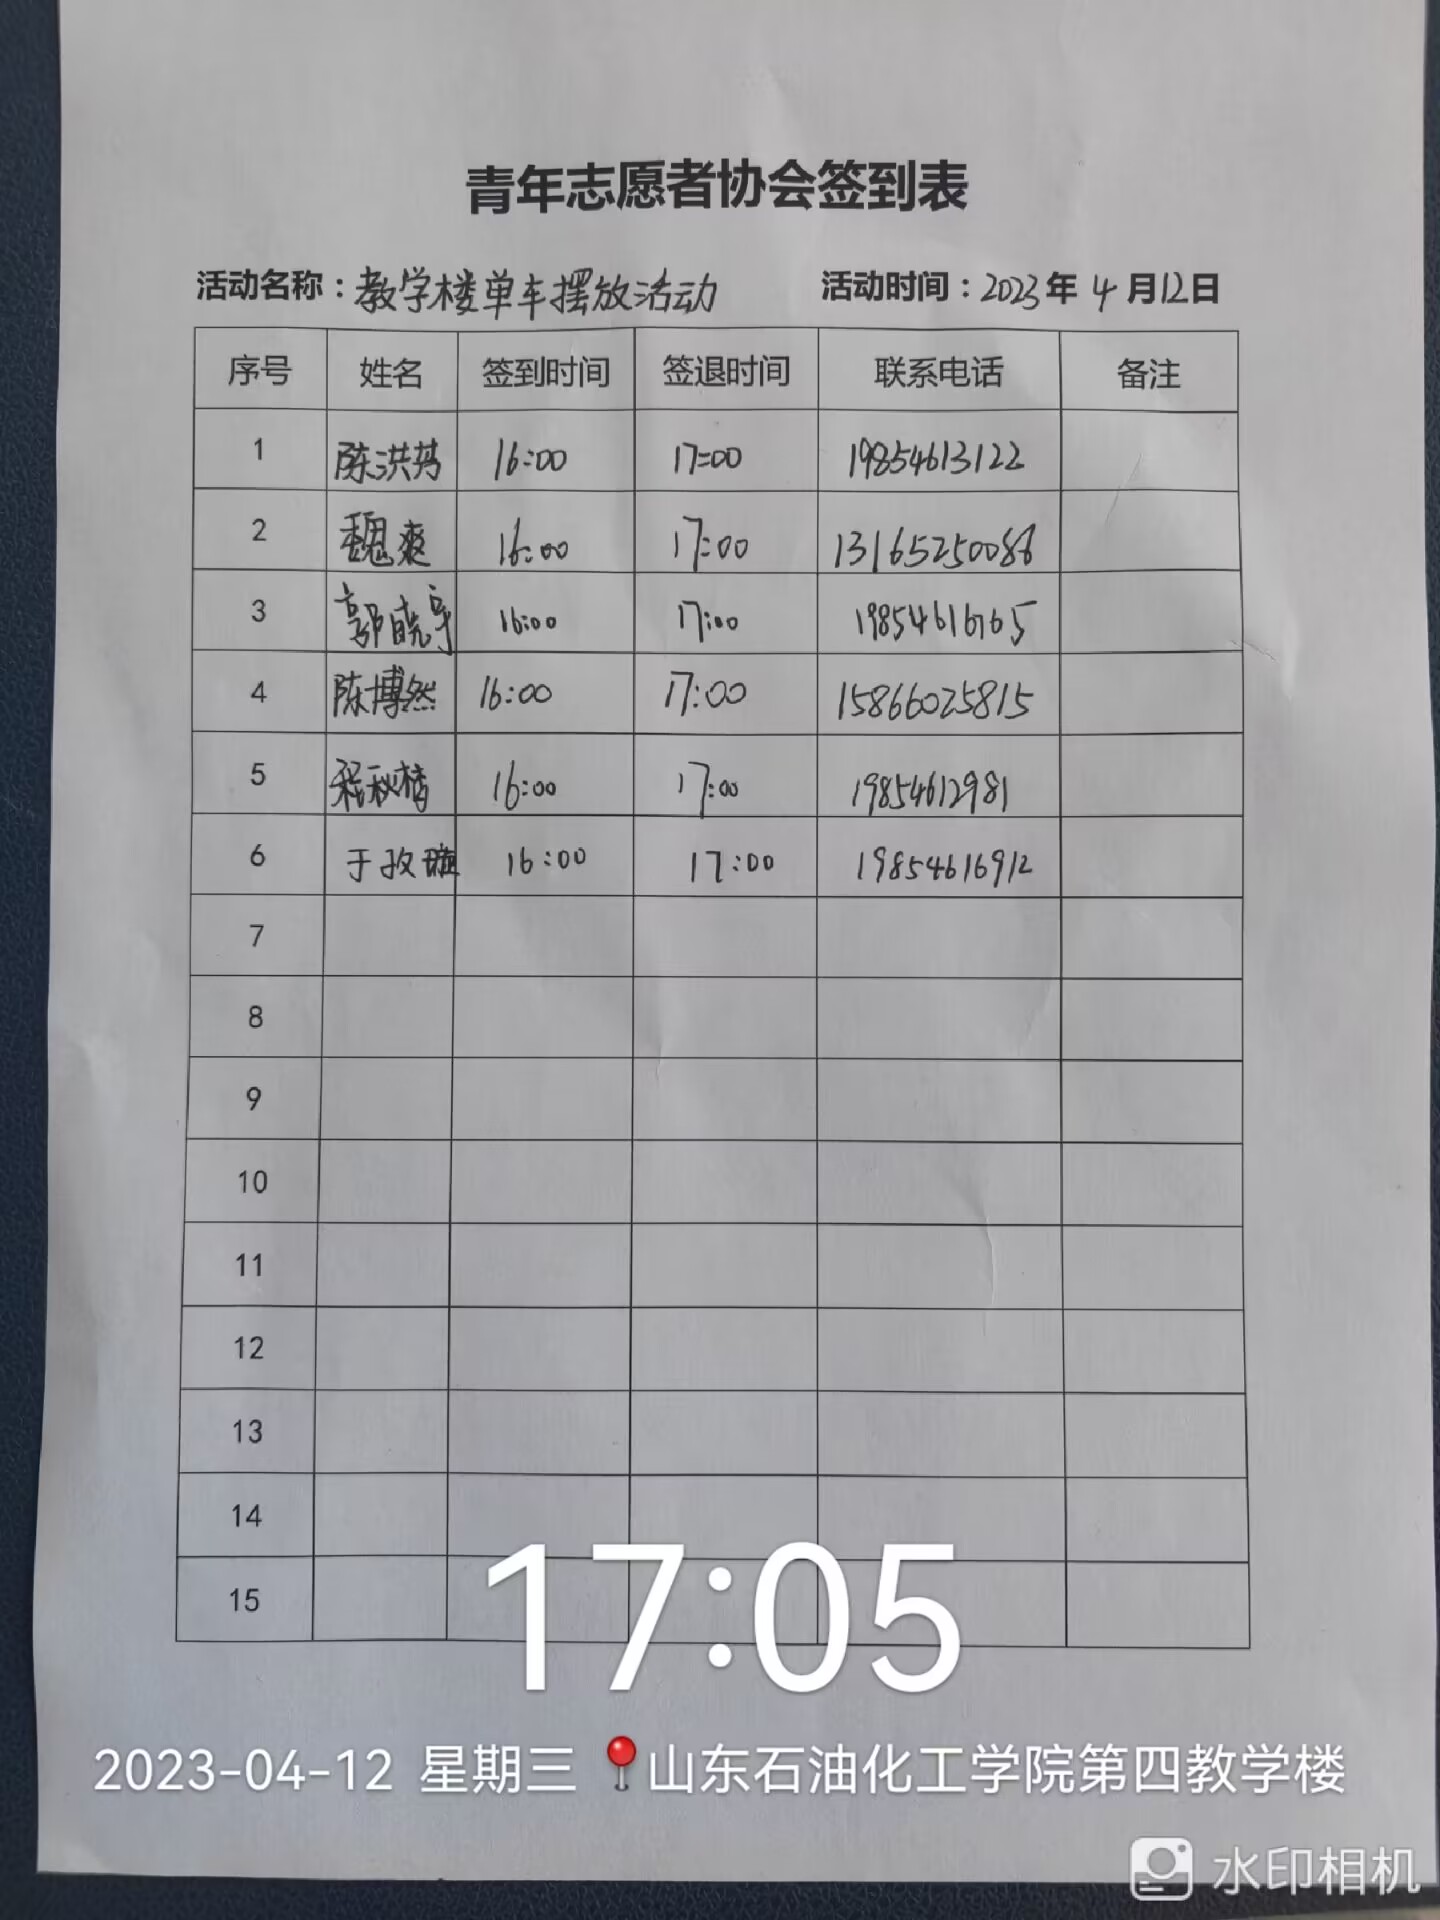 青年志愿者协会签到表
活动名称：教学楼单车摆放活动 活动时间：2023年4月12日
序号 姓名 签到时间 签退时间 联系电话 备注
1 陈洪 16:00 17:00 19854613122
2 魏爽 16:00 17:00 13165250086
3 郭晓宇 16:00 17:00 19854616765
4 陈博然 16:00 17:00 15866025815
5 程秋 16:00 17:00 19854612981
6 于玫 16:00 17:00 19854616912
7
8
9
10
11
12
13
14
15
17:05
2023-04-12 星期三 山东石油化工学院第四教学楼
水印相机